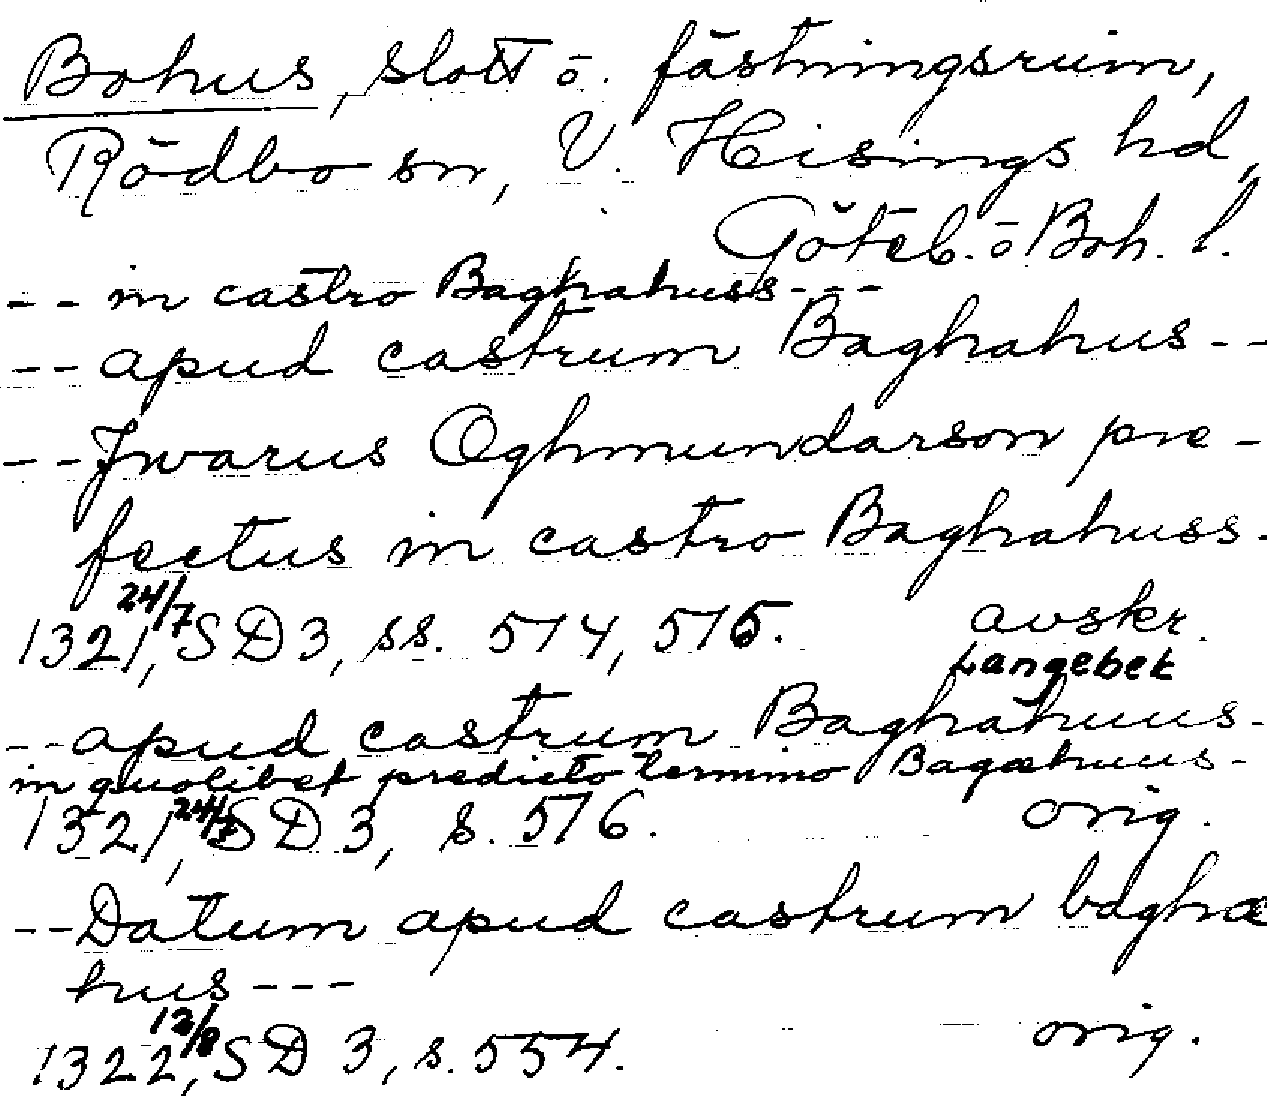 Bohus, slott o. fästningsruin,
Rödbo sn, V. Hisings hd,
Göteb. o Boh. l.
-- in castro Baghahuss---
-- apud castrum Baghahus--
-- Jwarus Oghmundarson pre-
fectus in castro Baghahuss.
1321 24/7, SD 3, ss. 574, 575. avskr.
Langebek
-- apud castrum Baghahuus-
in quolibet predicto termino Bagæhuus-
1321 24/7, SD 3, s. 576. orig.
-- Datum apud castrum baghæ
hus---
1322 12/8, SD 3, s. 554. orig.